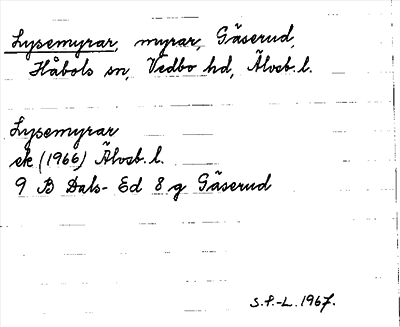 Lysemyrar, myrar, Gäserud,
Håbols sn, Vedbo hd, Älvsb. l.
Lysemyrar
ek (1966) Älvsb. l.
9 B Dals-Ed 8 g Gäserud
S.F.-L. 1967.